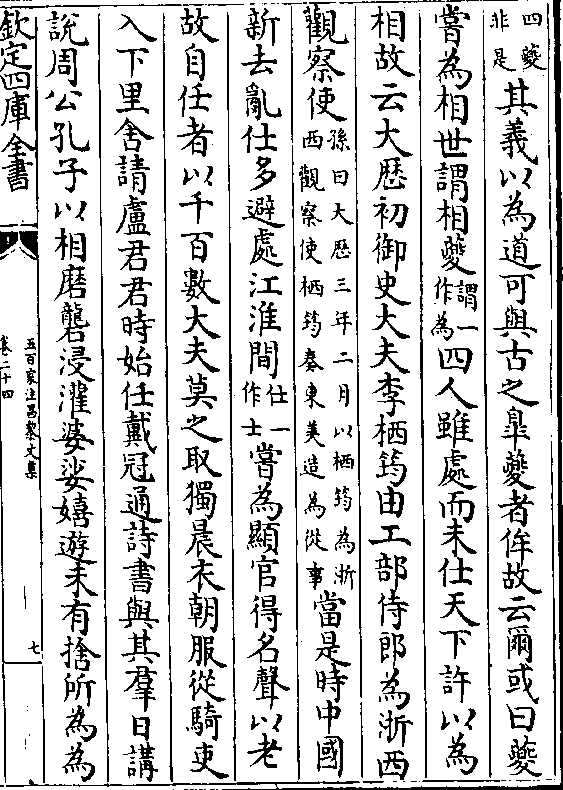 四夔
非是
其義以為道可與古之臯夔者侔故云爾或曰夔
嘗為相世謂相夔
謂一
作為
四人雖處而未仕天下許以為
相故云大厯初御史大夫李栖筠由工部侍郎為浙西
觀察使
孫曰大厯三年二月以栖筠為浙
西觀察使栖筠奏東美造為從事
當是時中國
新去亂仕多避處江淮間
仕一
作士
嘗為顯官得名聲以老
故自任者以千百數大夫莫之取獨晨衣朝服從騎吏
入下里舍請盧君君時始任戴冠通詩書與其羣日講
說周公孔子以相磨礲浸灌婆娑嬉遊未有捨所為為
欽定四庫全書
五百家注昌黎文集
卷二十四
七